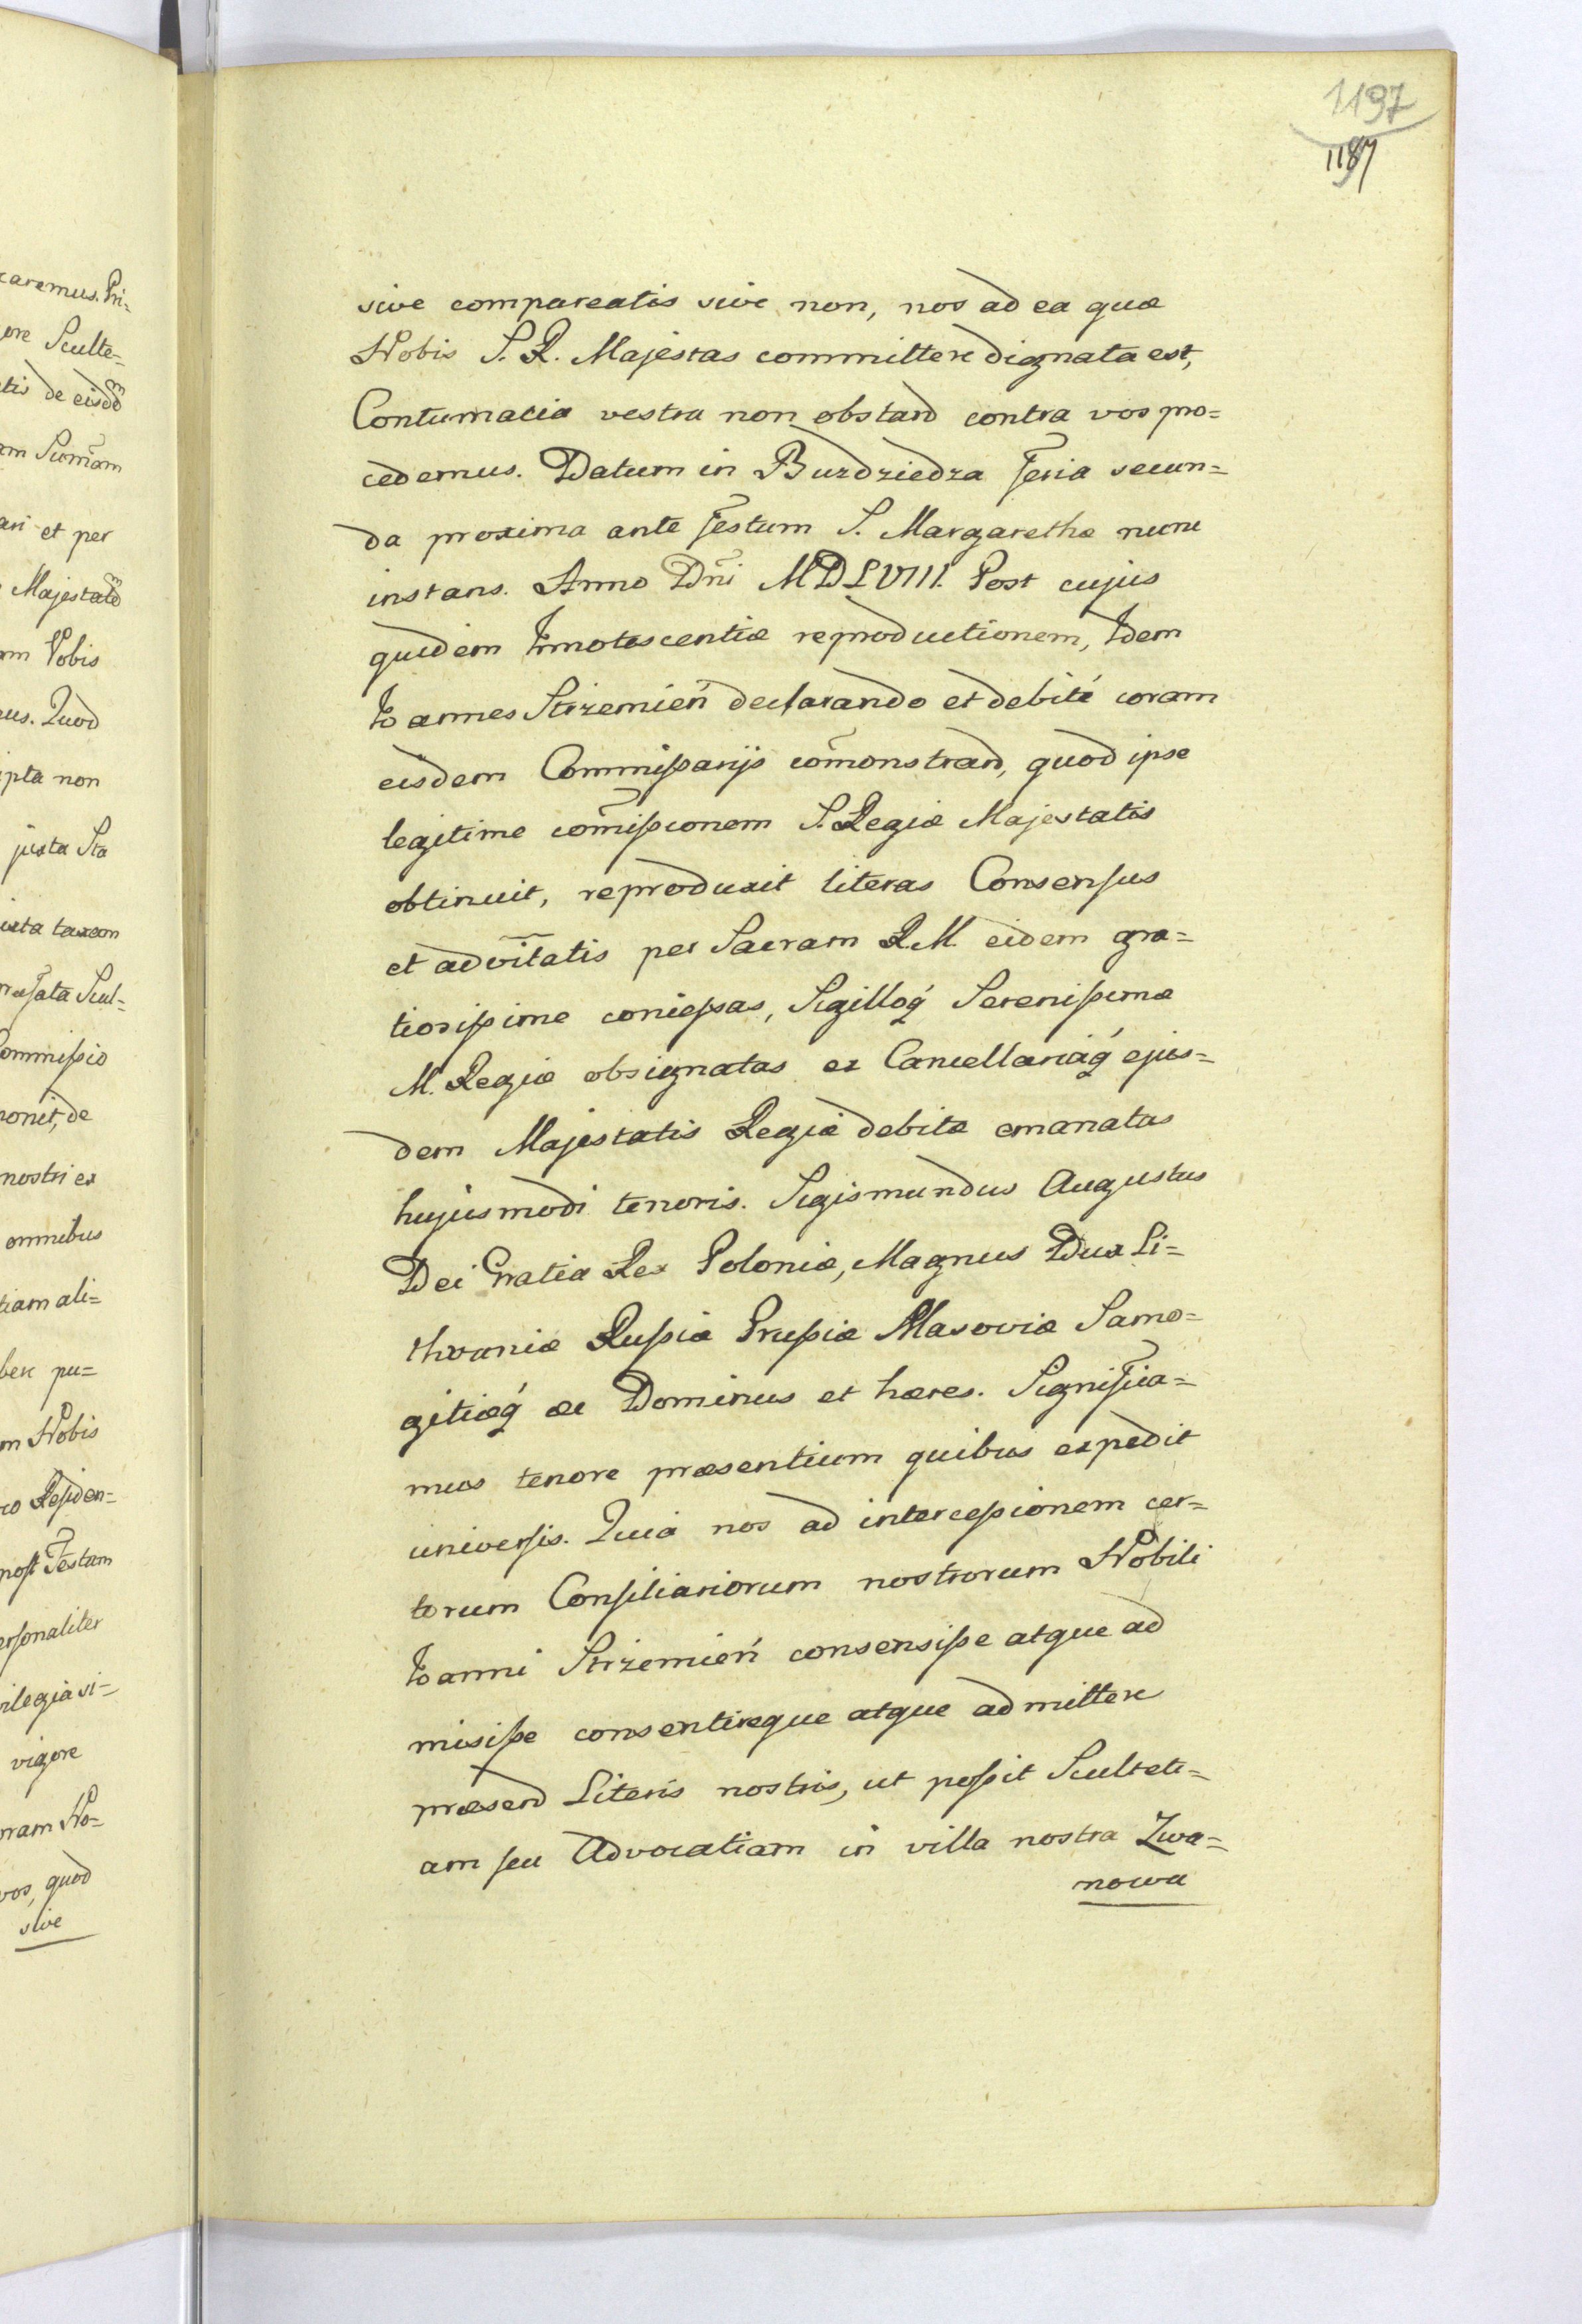 1197
1187
sive compareatis sive non, nos ad ea quæ
Nobis S. R. Majestas committere dignata est,
Contumacia vestra non obstand contra vos pro=
cedemus. Datum in Burdziedza feria secun=
da proxima ante festum S. Margarethæ nunc
instans. Anno Dñi MDLVIII. Post cujus
quidem Innotescentiæ reproductionem, Idem
Ioannes Strzemień declarando et debitè coram
eisdem Commißarijs com̃onstrand, quod ipse
legitime com̃ißionem S. Regiæ Majestatis
obtinuit, reproduxit literas Consensus
et advitãtis per Sacram R M. eidem gra=
tiosißime conceßas, Sigilloq́ Serenißimæ
M. Regiæ obsignatas ex Cancellariáq́ ejus=
dem Majestatis Regiæ debitæ emanatas
hujusmodi tenoris. Sigismundus Augustus
Dei Gratia Rex Poloniæ, Magnus Dux Li=
thvaniæ Rußiæ Prußiæ Masoviæ Samo=
gitiæq́ ac Dominus et hæres. Significa=
mus tenore præsentium quibus expedit
universis. Quia nos ad interceßionem cer=
torum Consiliariorum nostrorum Nobili
Ioanni Strzemień consensiße atque ad
misiße consentireque atque admittere
præsend Literis nostris, ut poßit Sculteti=
am seu Advocatiam in villa nostra Zwa=
nowa
caremus. Pri=
ore Sculte=
tis de eisdem
am Sum̃am
ari et per
Majestatem
am Vobis
us. Quod
ipta non
juxta Sta
uxta taxam
ræfata Scul=
Commißio
nonit, de
nostri ex
omnibus
tiam ali=
bere pu=
m Nobis
ro Residen=
post Festum
ersonaliter
vilegia si=
vigore
oram No=
vos, quod
sive